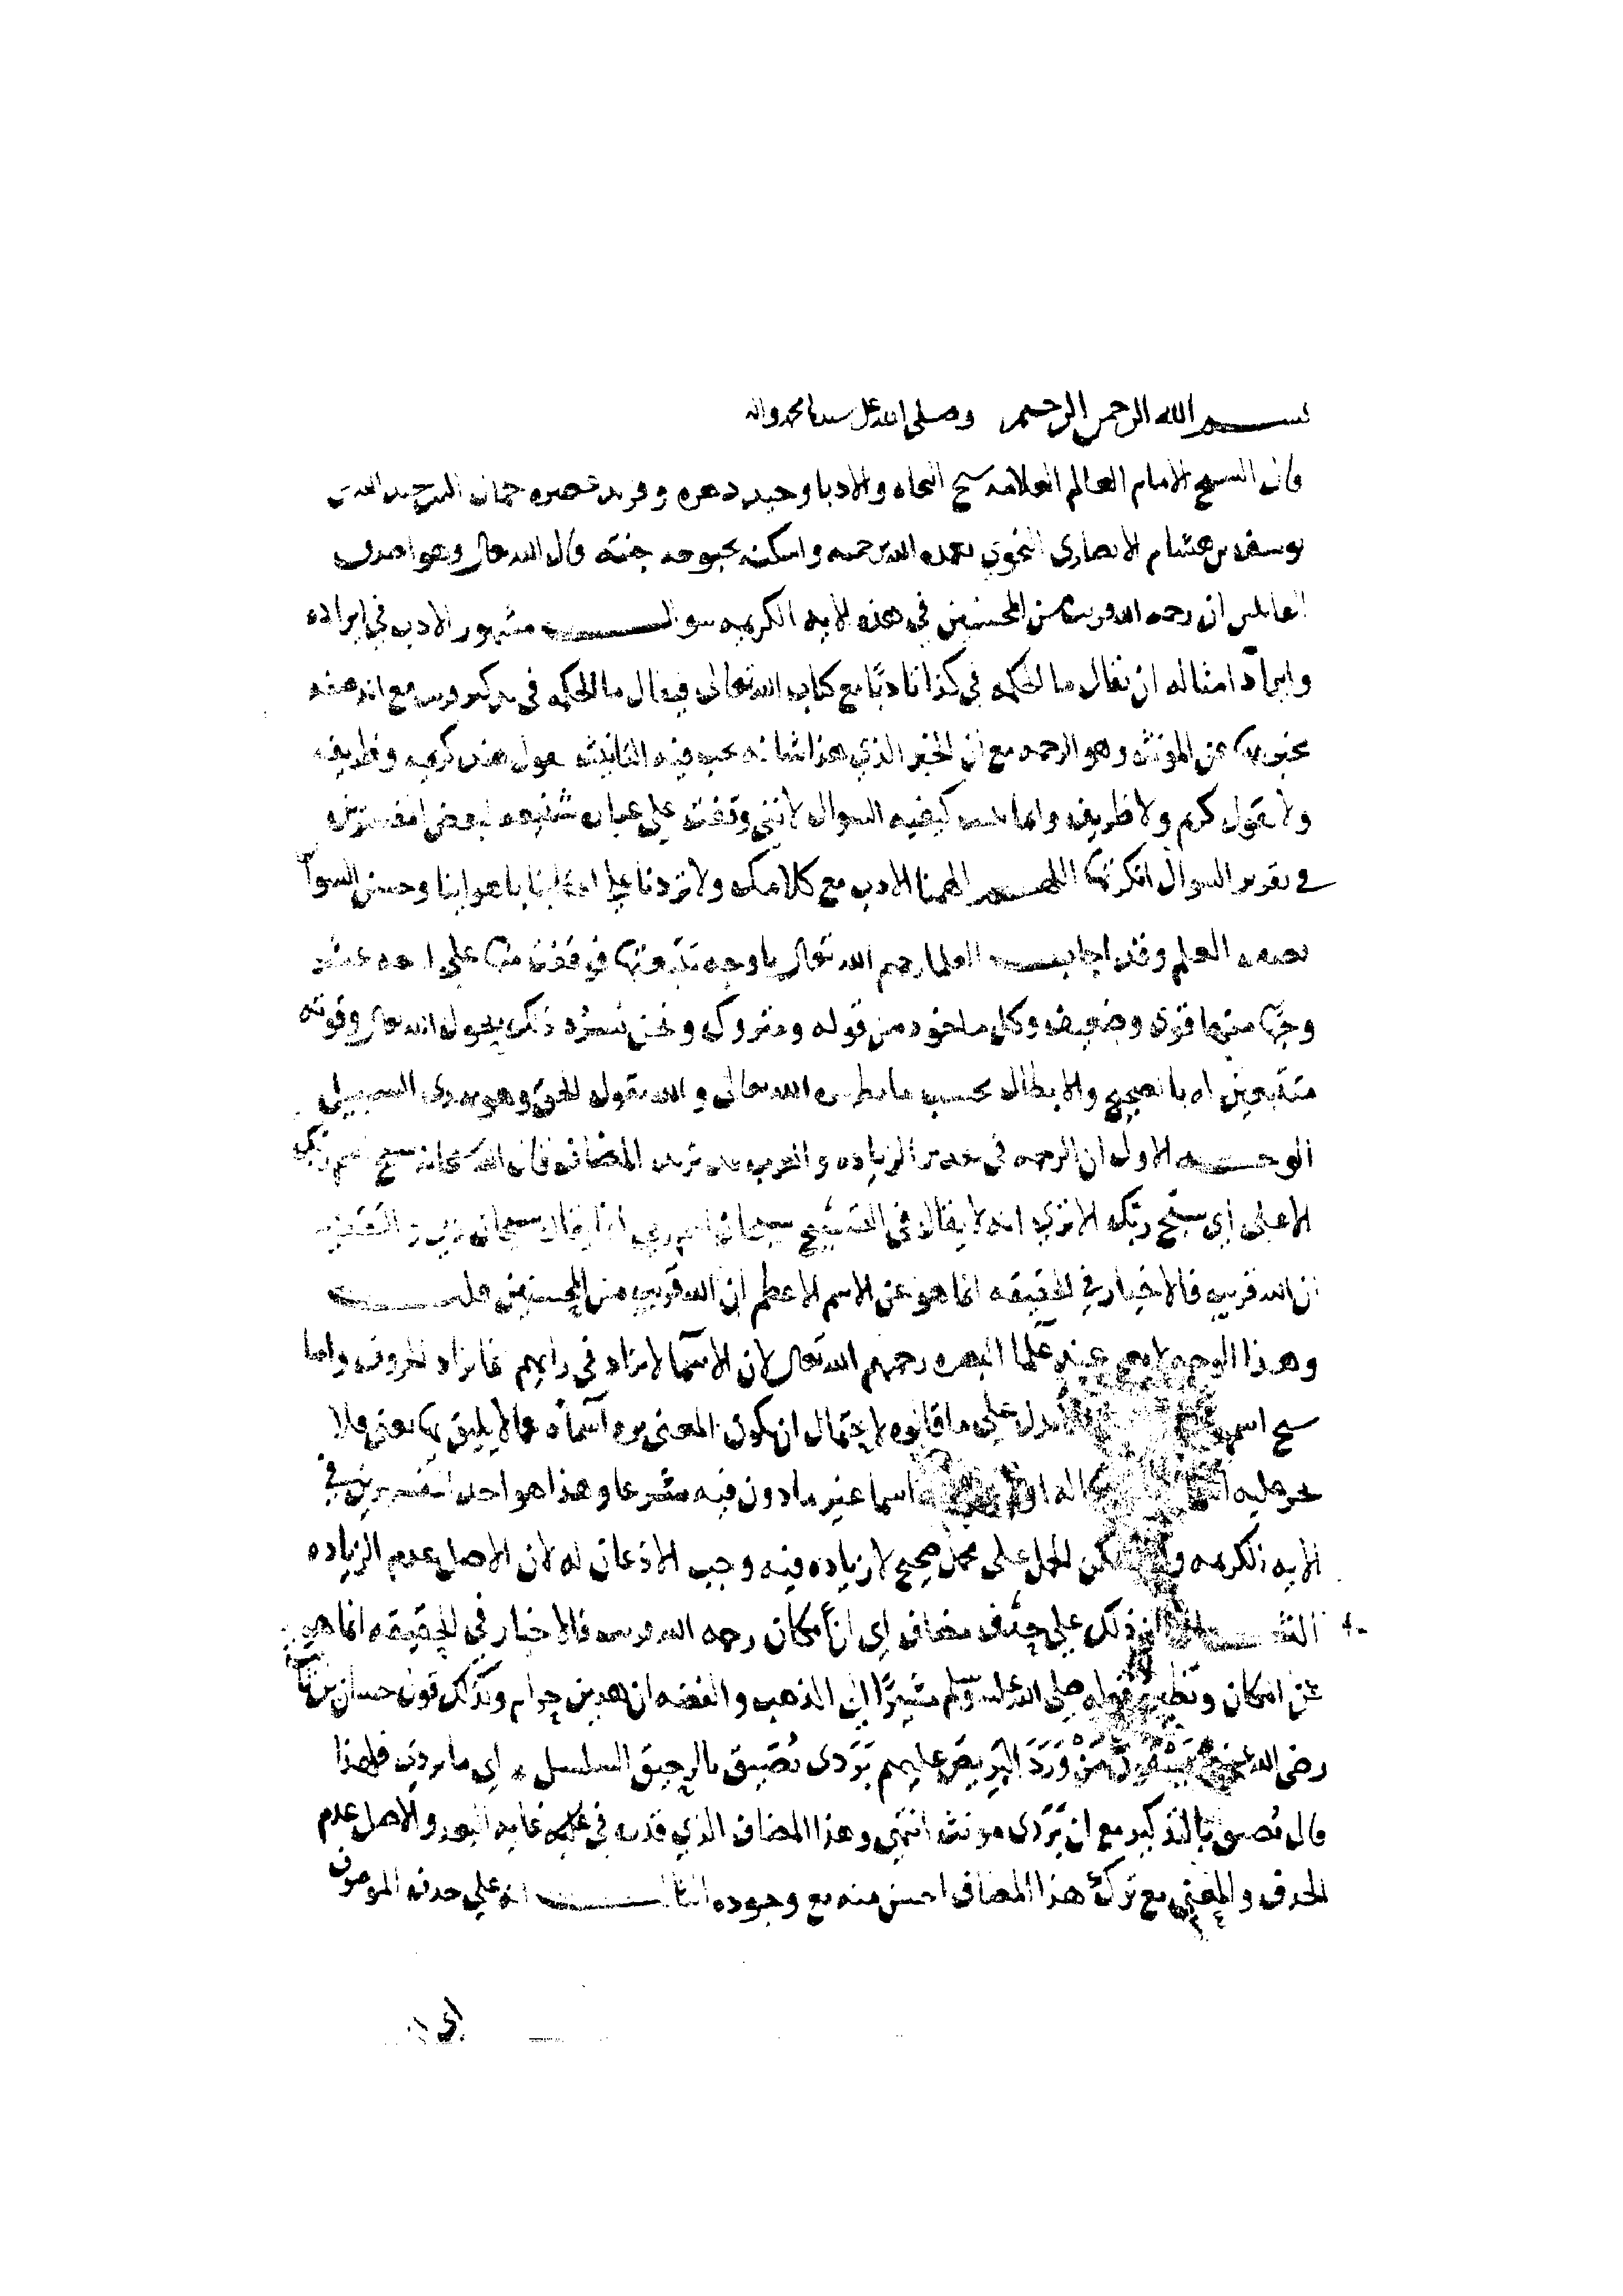 بسم الله الرحمن الرحيم وصلى الله على سيدنا محمد واله
قال الشيخ الامام العالم العلامه شيخ النحاه والادبا وحيد دهره وفريد عصره جمال الدين عبد الله بن
يوسف بن هشام الانصاري النحوي تغمده الله برحمته واسكنه بحبوحه جنته قال الله تعالى وهو اصدق
القائلين ان رحمه الله قريب من المحسنين في هذه الايه الكريمه سوال مشهور الادب في ايراده
وايراد امثاله ان يقال ما الحكمه في كذا تادبا مع كتاب الله تعالى فيقال ما الحكمه في تذكير قريب مع انه صفه
مخبر بها عن المونث وهو الرحمه مع ان الخبر الذي هذا شانه يجب فيه التانيث تقول هند كريمه وظريفه
ولا تقول كريم ولا ظريف وانما بينت كيفيه السوال لانني وقفت على عباره شنيعه لبعض المفسرين
في تقرير السوال انكرتها اللهم الهمنا الادب مع كلامك ولا تردنا على اعقابنا باهوائنا وحسن السوا
نصف العلم وقد اجاب العلما رحمهم الله تعالى باوجه تتبعتها فوقفت منها على اربعه عشر
وجها منها قوي وضعيف وكل ماخوذ من قوله ومتروك ونحن نسرد ذلك بحول الله تعالى وقوته
متتبعين له بالتصحيح والابطال بحسب ما يظهره الله تعالى والله يقول الحق وهو يهدي السبيل
الوجه الاول ان الرحمه في تقدير الزياده والعرب قد تزيد المضاف قال الله سبحانه سبح اسم ربك
الاعلى اي سبح ربك الا ترى انه لا يقال في التسبيح سبحان اسم ربي انما يقال سبحان ربي والتقدير
ان الله قريب فالاخبار في الحقيقه انما هو عن الاسم الاعظم ان الله قريب من المحسنين قلت
وهذا الوجه لا يصح عند علما البصره رحمهم الله تعالى لان الاسما لا تزاد في رايهم انما تزاد الحروف واما
سبح اسم يدل على ما قالوه لاحتمال ان يكون المعنى نزه اسماه عما لا يليق بها يعني فلا
تجر عليه اسما غير ماذون فيه شرعا وهذا هو احد التفسيرين في
الايه الكريمه يمكن الحمل على محمل صحيح لا زياده فيه وجب الاذعان له لان الاصل عدم الزياده
الثاني ان ذلك على حذف مضاف اي ان مكان رحمه الله قريب فالاخبار في الحقيقه انما هو
عن المكان ونظيره قوله صلى الله عليه وسلم مشيرا الى الذهب والفضه ان هذين حرام وكذلك قول حسان بن ثابت
رضي الله عنه يَسْقُونَ مَنْ وَرَدَ البَرِيصَ عليهم بَرَدَى يُصَفَّقُ بالرحيق السلسل اي ما بردى فلهذا
قال يصفق بالتذكير مع ان بَرَدَى مونث انتهى وهذا المضاف الذي قدره في غايه البعد والاصل عدم
الحذف والمعنى مع ترك هذا المضاف احسن منه مع وجوده الثالث انه على حذف الموصوف
اي